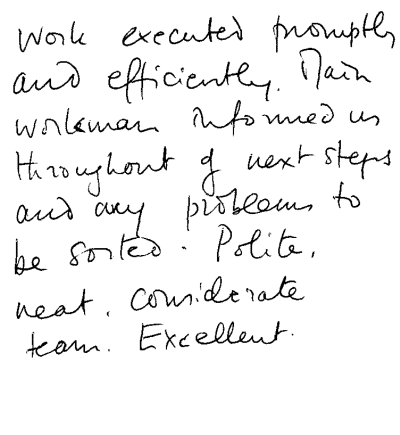 Work executed promptly
and efficiently. Main
workman informed us
throughout of next steps
and any problems to
be sorted. Polite,
neat, considerate
team. Excellent.